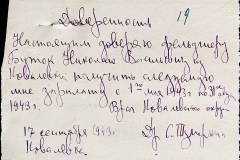 Доверенность 19
Настоящим доверяю фельдшеру
Буток Николаю Васильевичу из
Ковалевки получить следуемую
мне зарплату с 1го мая 1943 г. по
1943 г. Врач Ковалевского
17 сентября 1943 г. Др. С.
Ковалевка.